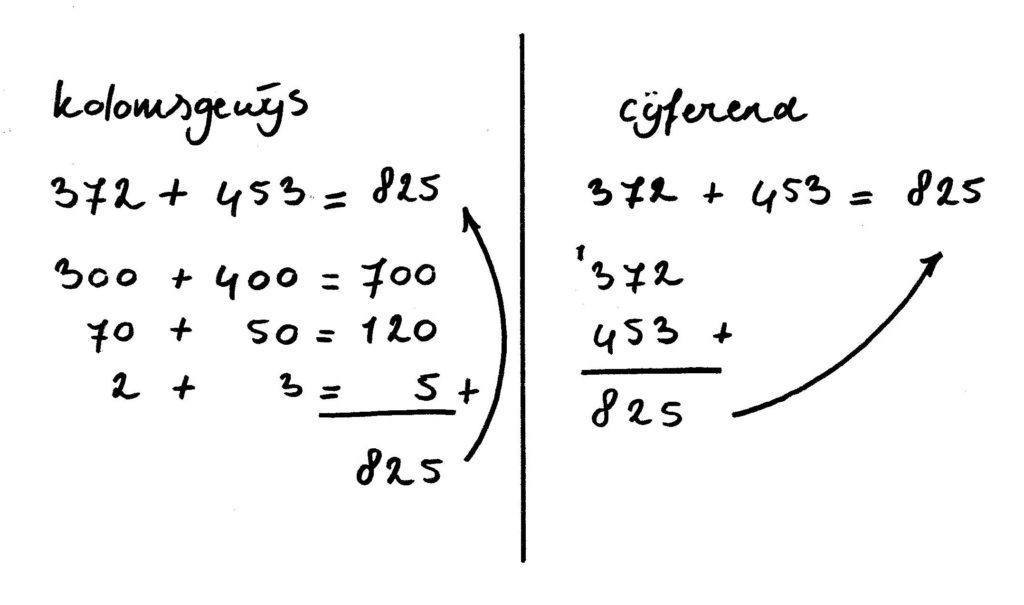 kolomsgewijs
372 + 453 = 825
300 + 400 = 700
70 + 50 = 120
2 + 3 = 5 +
825
cijferend
372 + 453 = 825
1
372
453 +
825